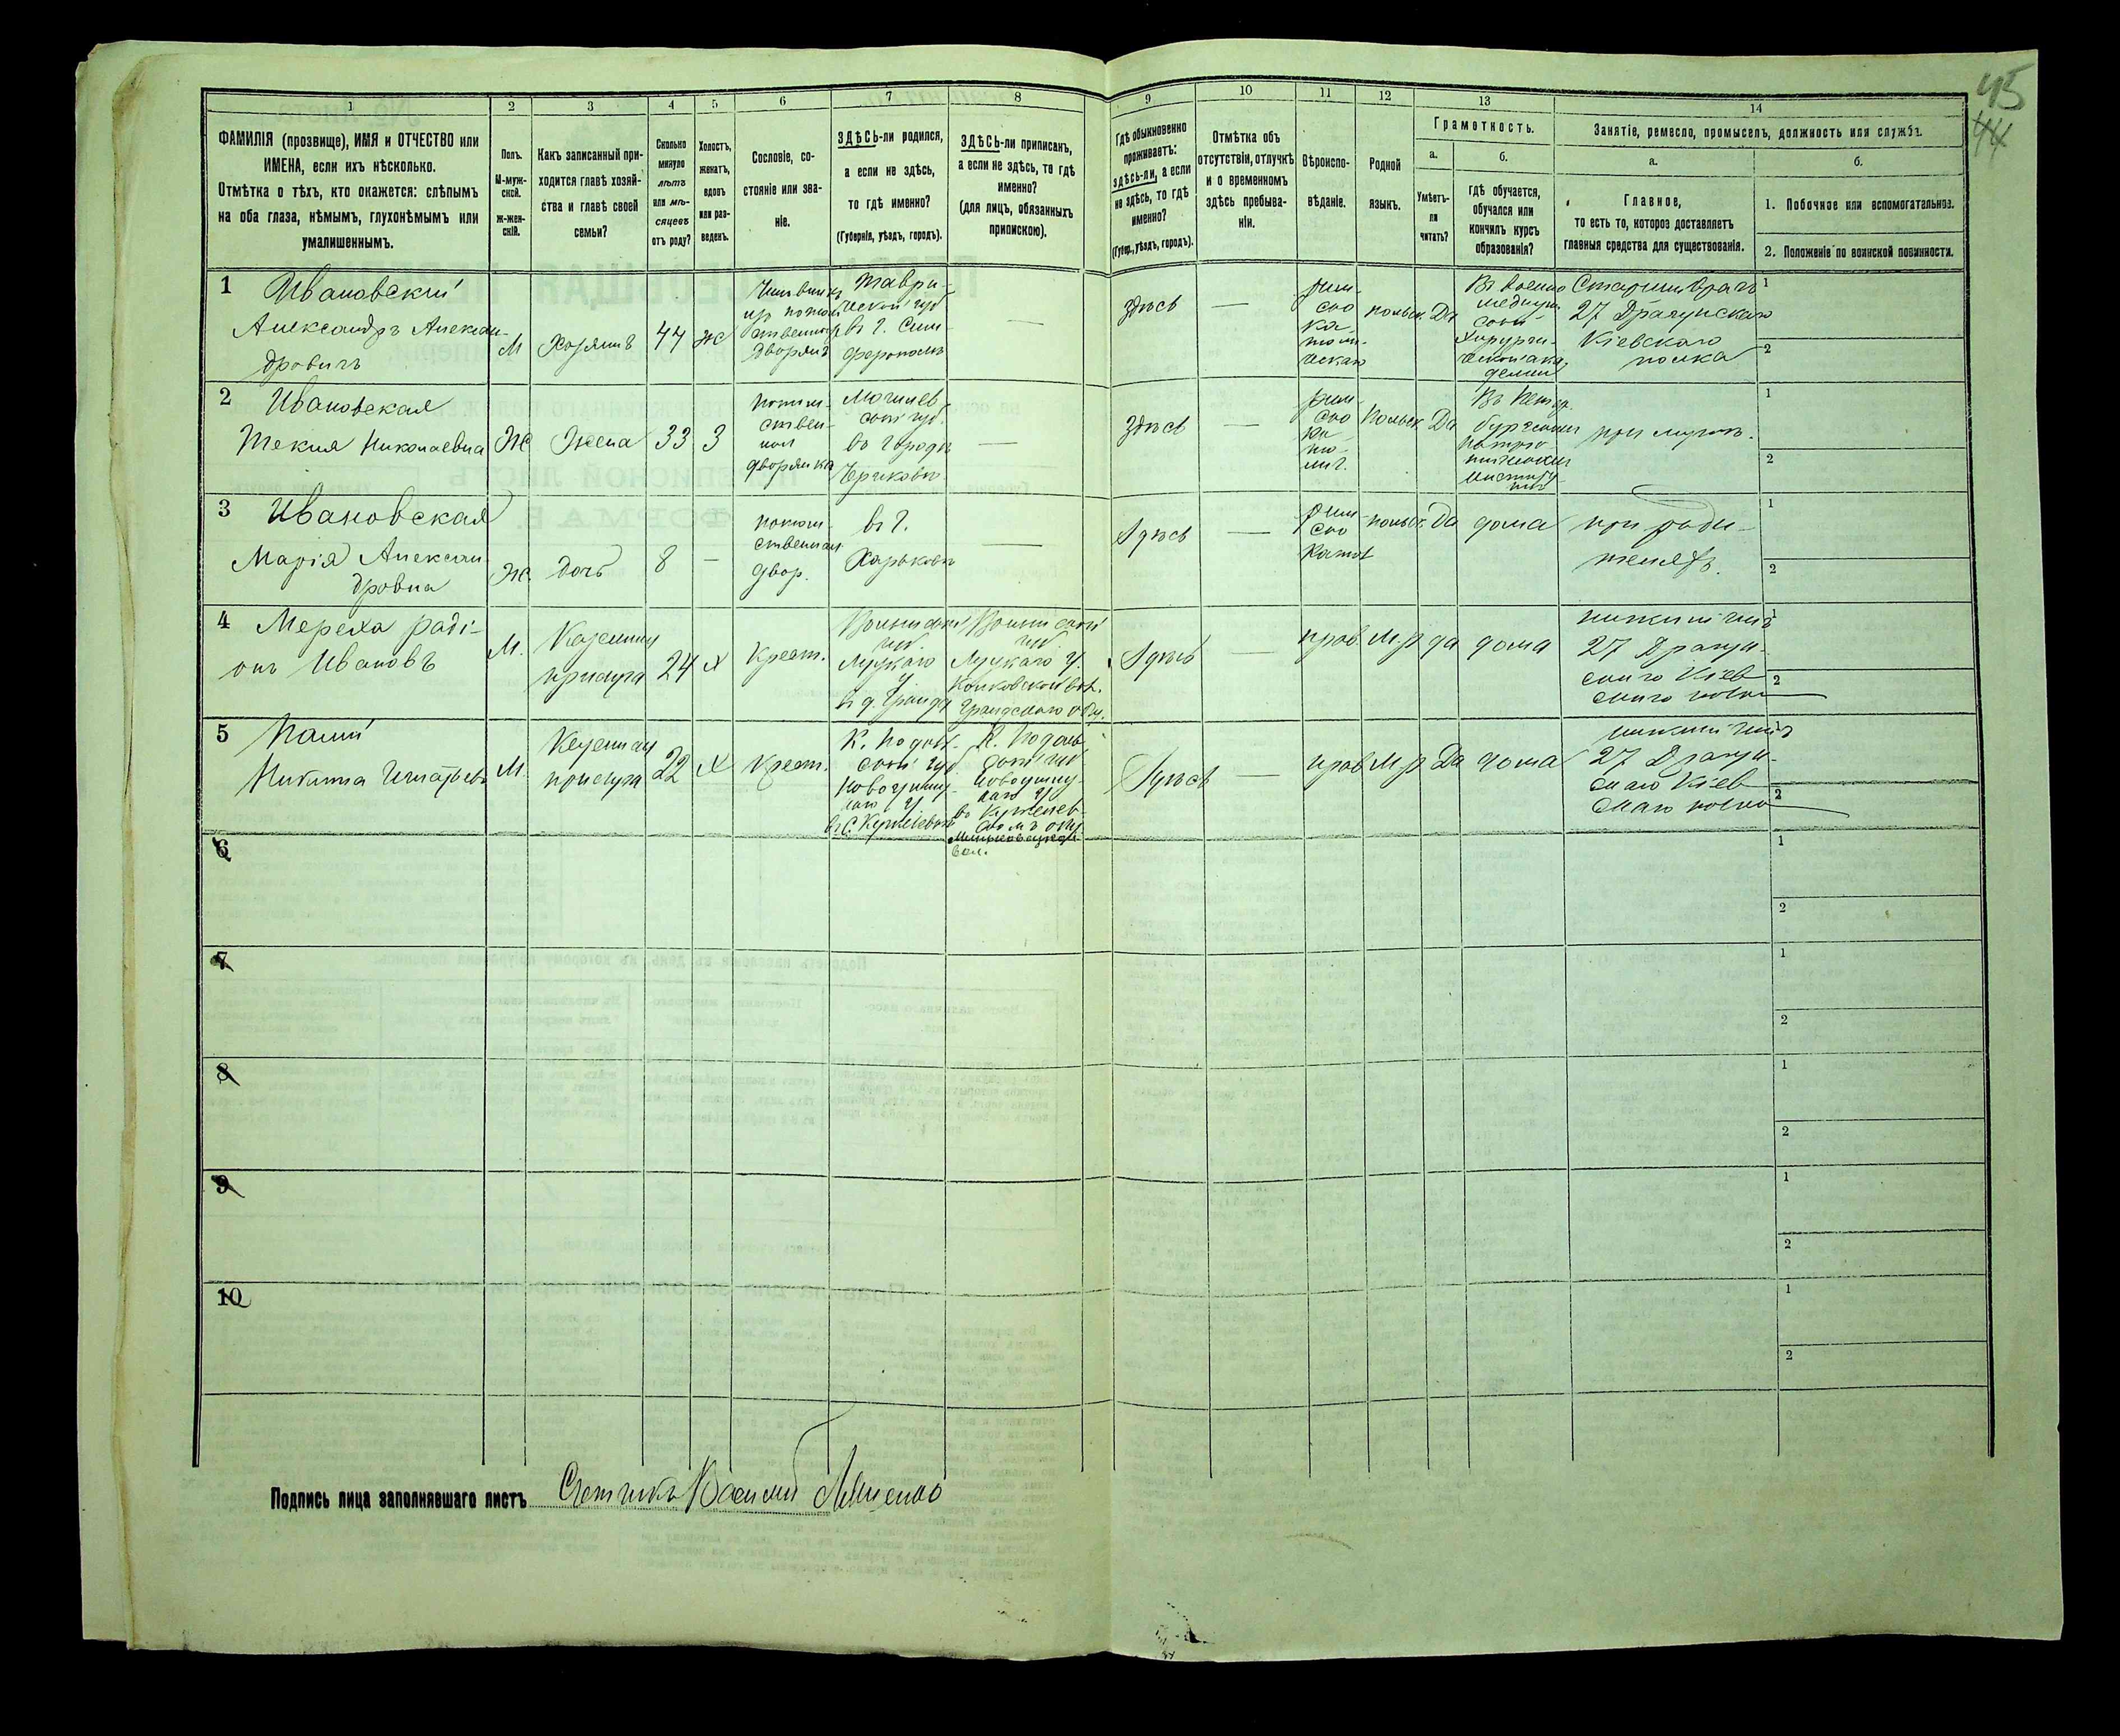 45
44
1
2
3
4
5
6
7
8
9
10
11
12
13
14
ФАМИЛІЯ (прозвище), ИМЯ и ОТЧЕСТВО или
ИМЕНА, если ихъ нѣсколько.
Отмѣтка о тѣхъ, кто окажется: слѣпымъ
на оба глаза, нѣмымъ, глухонѣмымъ или
умалишеннымъ.
Полъ.
М-муж-
ской.
Ж-жен-
скій.
Какъ записанный при-
ходится главѣ хозяй-
ства и главѣ своей
семьи?
Сколько
минуло
лѣтъ
или мѣ-
сяцевъ
отъ роду?
Холостъ,
женатъ,
вдовъ
или раз-
веденъ.
Сословіе, со-
стояніе или зва-
ніе.
ЗДѢСЬ-ли родился,
а если не здѣсь,
то гдѣ именно?
(Губернія, уѣздъ, городъ).
ЗДѢСЬ-ли приписанъ,
а если не здѣсь, то гдѣ
именно?
(для лицъ, обязанныхъ
припискою).
Гдѣ обыкновенно
проживаетъ:
здѣсь-ли, а если
не здѣсь, то гдѣ
именно?
(Губер., уѣздъ, городъ).
Отмѣтка объ
отсутствіи, отлучкѣ
и о временномъ
здѣсь пребыва-
ніи.
Вѣроиспо-
вѣданіе.
Родной
языкъ.
Грамотность.
а.
Умѣетъ-
ли
читать?
б.
гдѣ обучается,
обучался или
кончилъ курсъ
образованія?
Занятіе, ремесло, промыселъ, должность или служба.
а.
Главное,
то есть то, которое доставляетъ
главныя средства для существованія.
б.
1. Побочное или вспомогательное.
2. Положеніе по воинской повинности.
1
Ивановский
Александръ Алексан-
дровичъ
М
Хозяинъ
44
же
Таври-
ческой губ
въ г. Сим-
ферополь
—
Здѣсь
—
рим-
ско
ка-
толи-
ческая
польск.
Да
Въ военно
медицин
Хирурги-
ческой ака-
деміи
Старшій врачъ
27 Драгунскаго
Кіевскаго
полка
1
2
2
Ивановская
Текля Николаевна
Ж
Жена
33
З
потом-
ствен-
ная
дворянка
Могилев-
ской губ.
въ городѣ
Чериковѣ
—
Здѣсь
—
рим-
ско
ка-
то-
лич.
Польск
Да
Въ Петер-
бургскомъ
институ-
при мужѣ.
1
2
3
Ивановская
Марія Алексан-
дровна
Ж.
дочь
8
—
потом-
ственная
двор.
въ г.
Харьковѣ
—
Здѣсь
—
рим-
ско
катол
польск.
Да
дома
при роди-
теляхъ.
1
2
4
Мереха раді-
онъ Ивановъ
М.
Казенная
прислуга
24
х
Крест.
Волынской
губ.
Луцкаго
у.
Волынской
губ.
Луцкаго у.
Колковской вол.
Здѣсь
—
прав
М.р
да
дома
нижній чинъ
27 Драгун-
скаго Кіев
скаго полка
1
2
5
Никита Игнатьевъ
М.
Казенная
прислуга
22
х
Крест.
К. Подол-
ской губ
Новоушиц-
каго у
К. Подоль-
ской губ
Новоушиц-
каго у
вол.
Здѣсь
—
прав
М.р
Да
дома
нижній чинъ
27 Драгун-
скаго Кіев
скаго полка
1
2
6
1
2
7
1
2
8
1
2
9
1
2
10
1
2
Подпись лица заполнявшаго листъ Счетчикъ Василий